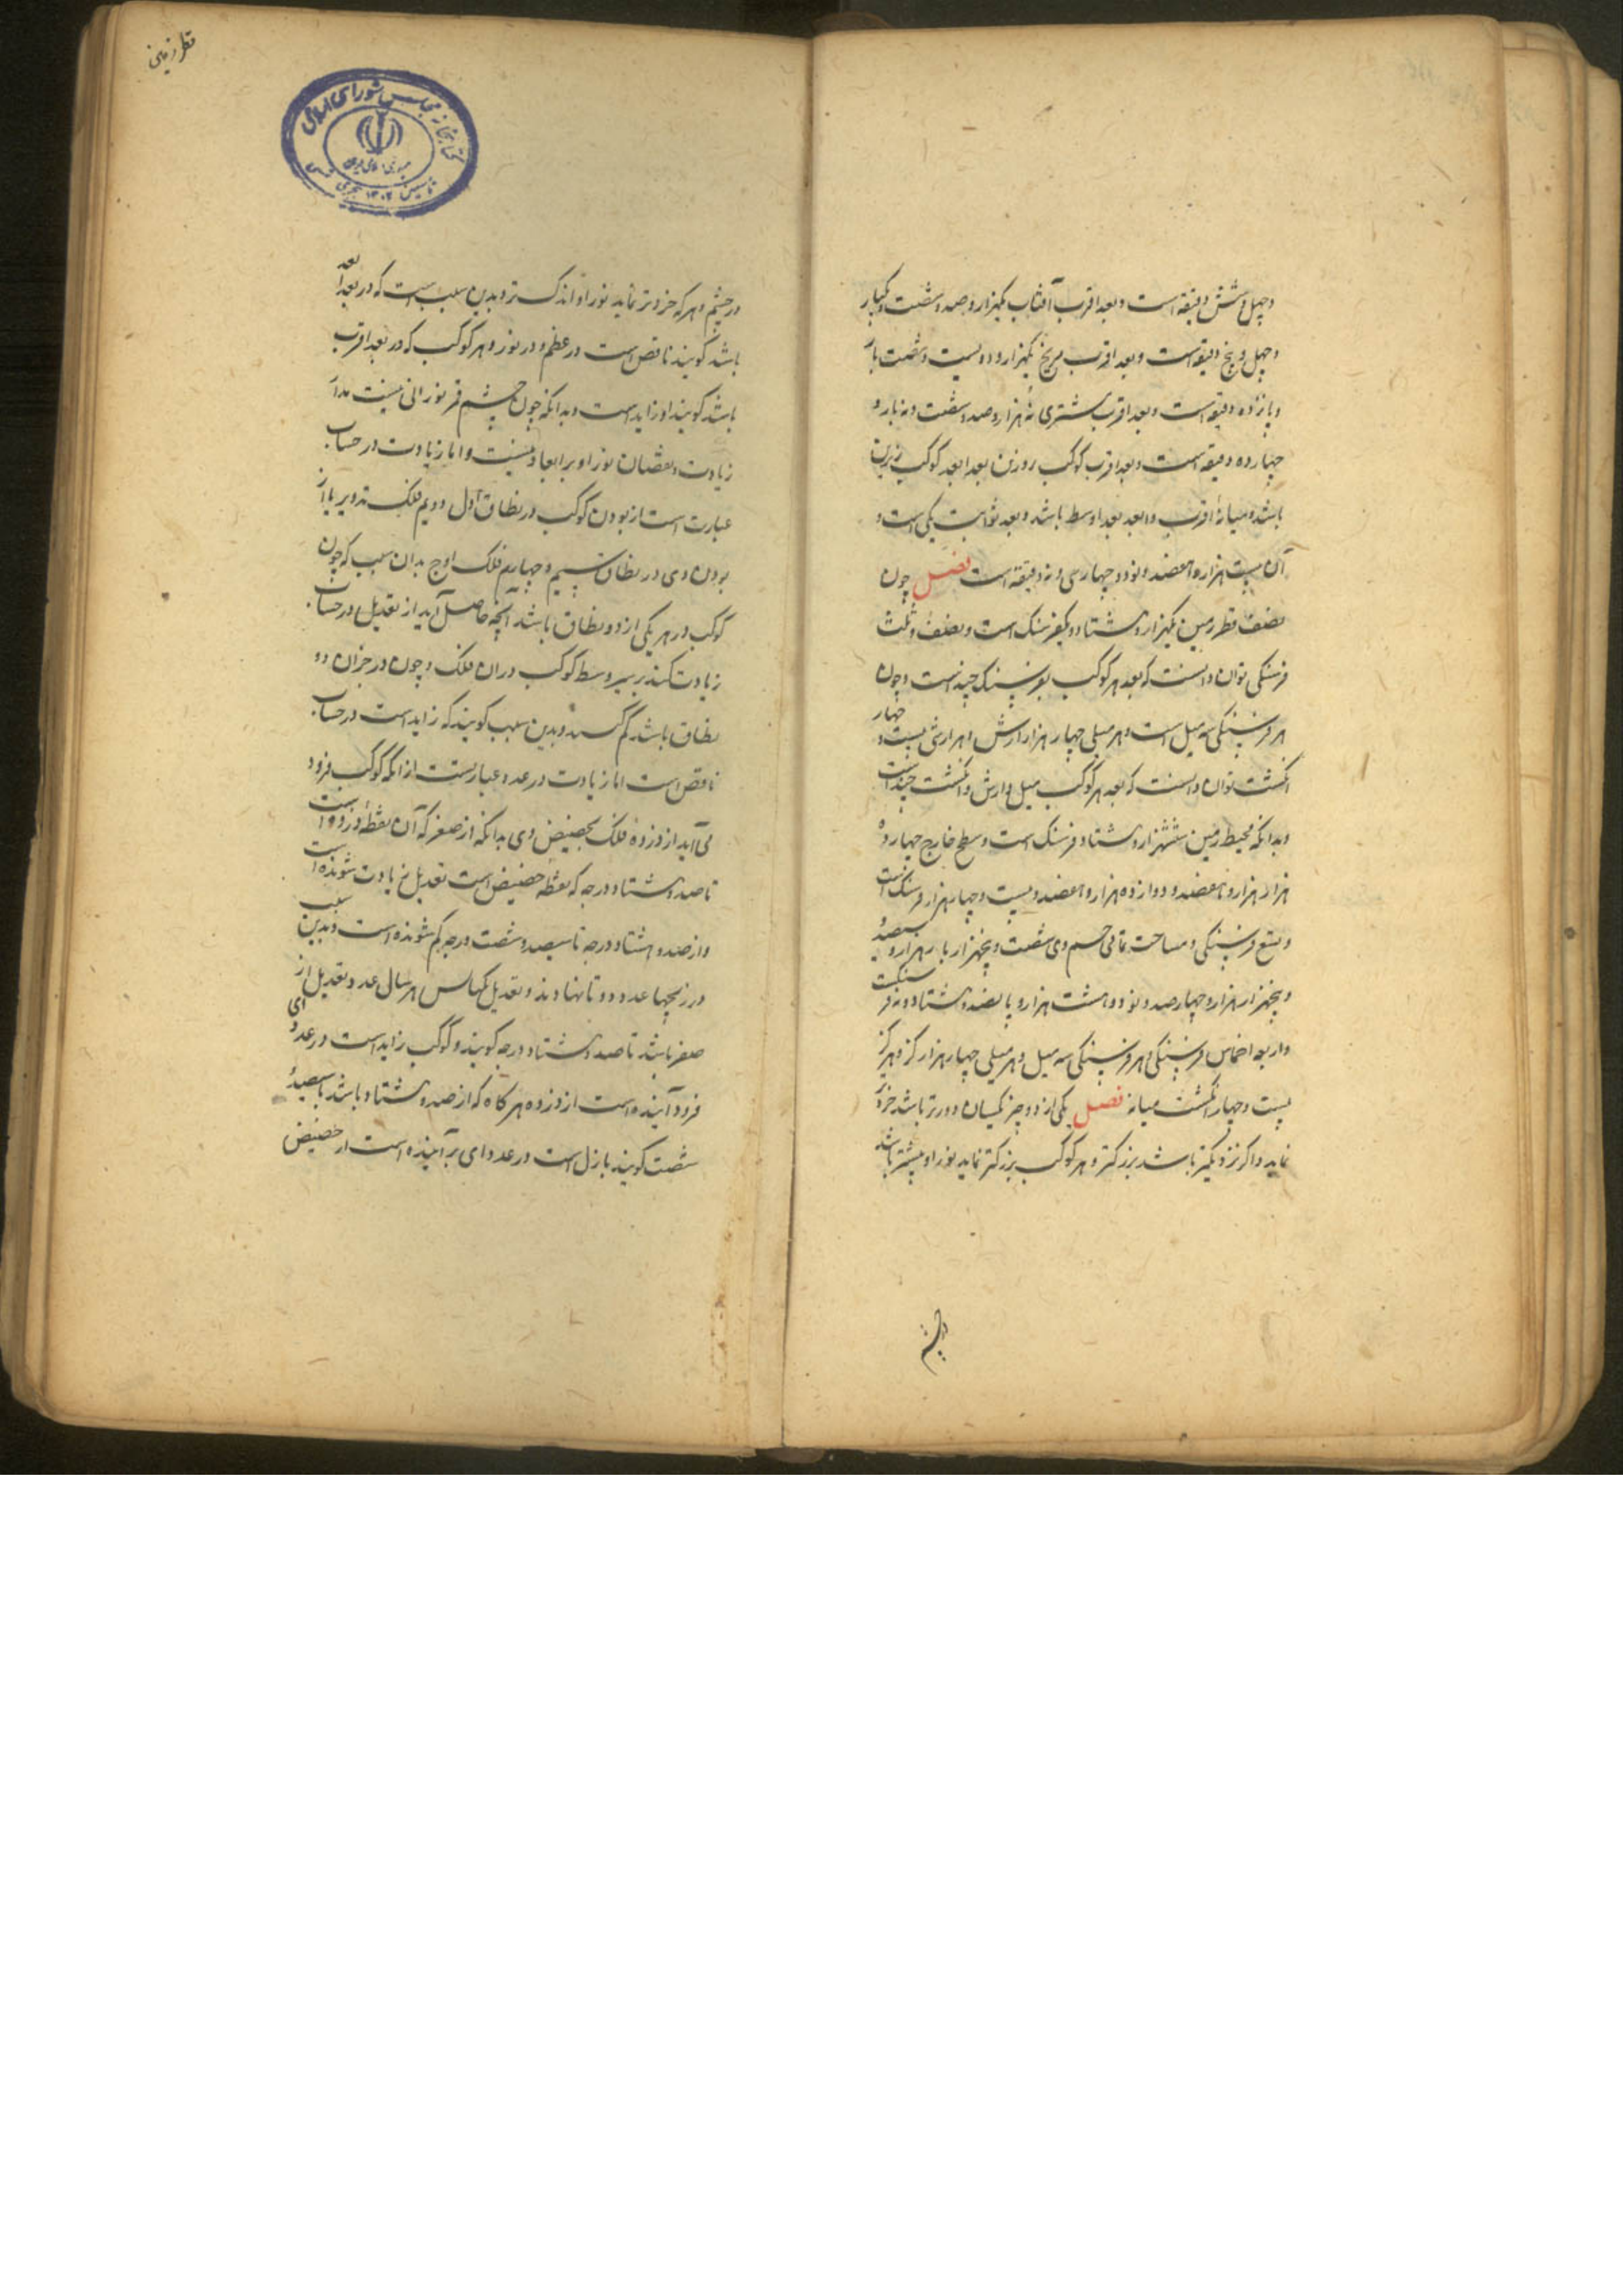 وچهل وشش دقیقه است وبعد اقرب آفتاب یکهزار وصد وشصت ویکبار
وچهل وپنج دقیقه است وبعد اقرب مریخ یکهزار ودویست وشصت بار
وپانزده دقیقه است وبعد اقرب مشتری نه هزار وصد وشصت ونه بار و
چهارده دقیقه است وبعد اقرب کوکب روزن بعد ابعد کوکب زیرین
باشد ومیانهٔ اقرب وابعد بعد اوسط باشد وبعد ثوابت یکی است و
آن بیست هزار وهفصد ونود وچهار سی ونه دقیقه است فصل چون
نصف قطر زمین یکهزار وهشتاد ویکفرسنک است ونصف وثلث
فرسنکی توان دانست که بعد هر کوکب بفرسنک چند است وچون
هر فرسنکی سه میل است وهر میلی چهار هزار ارش وهر ارش بیست و چهار
انکشت توان دانست که بعد هر کوکب میل وارش وانکشت چند است
وبدانکه محیط زمین ششهزار وهشتاد فرسنک است وسطح خارج چهارده
هزار هزار وهفصد ودوازده هزار وهفصد وبیست وچهار هزار فرسنک است
وتسع فرسنکی ومساحت تمامی جسم وی شصت وپنجهزار بار هزار وسیصد
وپنجهزار هزار وچهارصد ونود وهشت هزار وپانصد وهشتاد ونه فرسنکست
واربعه اخماس فرسنکی وهر فرسنکی سه میل وهر میلی چهار هزار کز وهر کز
بیست وچهار انکشت میانه فصل یکی از دو چیز یکسان دورتر باشد خردتر
نماید واکر نزدیکتر باشد بزرکتر وهر کوکب بزرکتر نماید نور او بیشتر باشد
در چشم
قطر زمین
در چشم وهر که خردتر نماید نور او اندک تر وبدین سبب است که در بعد ابعد
باشد کویند ناقص است در عظم ودر نور وهر کوکب که در بعد اقرب
باشد کویند او زاید است وبدانکه چون جسم قمر نورانی نیست مدار
زیادت ونقصان نور او بر ابعاد نیست واما زیادت در حساب
عبارت است از بودن کوکب در نطاق اول ودویم فلک تدویر یا از
بودن وی در نطاق سیم وچهارم فلک اوج بدان سبب که چون
کوکب در هر یکی از دو نطاق باشد آنچه حاصل آید از تعدیل در حساب
زیادت کنند بر سیر وسط کوکب در ان فلک وچون در جز ان دو
نطاق باشد کم کنند وبدین سبب کویند که زاید است در حساب
ناقص است اما زیادت در عدد عبارتست از انکه کوکب فرود
می آید از ذروهٔ فلک بحضیض وی بدانکه از صفر که آن نقطهٔ ذروه است
تا صد وهشتاد درجه که نقطهٔ حضیض است تعدیل زیادت شونده است
واز صد وهشتاد درجه تا سیصد وشصت درجه کم شونده است وبدین سبب
در زیجها عدد دو تا نهادند وتعدیل یکی پس هر سال عدد وتعدیل از
صفر باشد تا صد وهشتاد درجه کویند کوکب زاید است در عدد ای
فرود آینده است از ذروه هر کاه که از صد وهشتاد باشد تا سیصد و
شصت کویند نازل است در عدد ای بر آینده است از حضیض